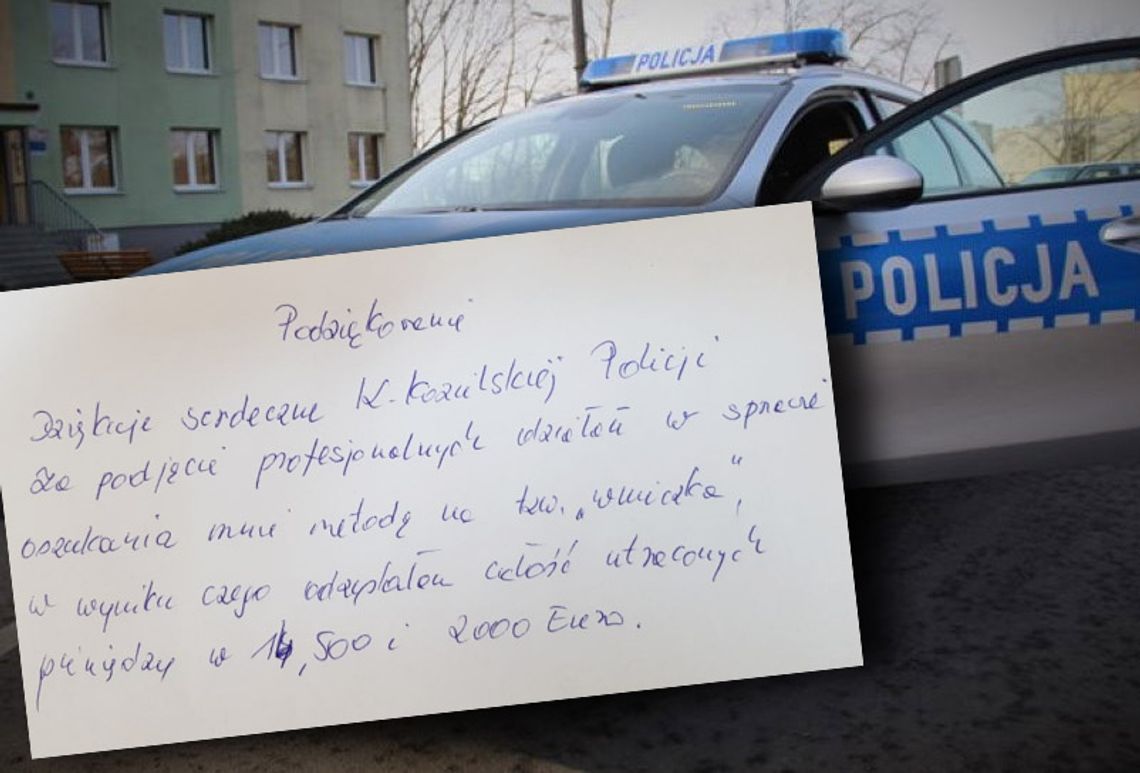 POLICJA
POLICJA
Podziękowanie
Dziękuję serdecznie K.Kozielskiej Policji
Za podjęcie profesjonalnych działań w sprawie
oszukania mnie metodą na tzw. „wnuczka",
w wyniku czego odzyskałam całość utraconych
pieniędzy w 14,500 i 2000 Euro.